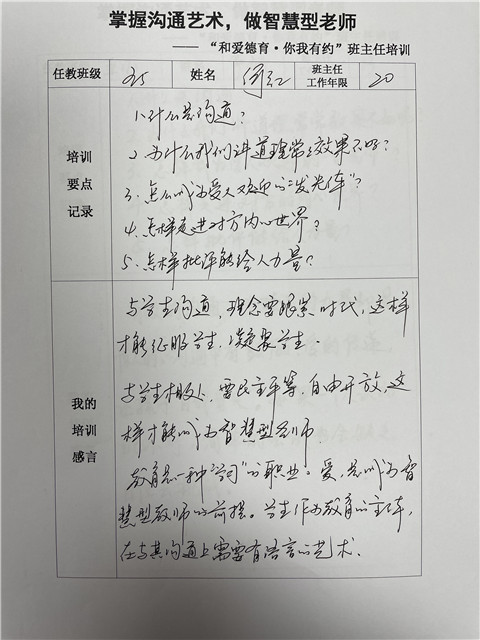 掌握沟通艺术，做智慧型老师
—— “和爱德育·你我有约”班主任培训
任教班级
姓名
班主任
工作年限
20
培训
要点
记录
1、什么是沟通？
2、为什么我们讲道理常常效果不好？
3、怎么成为受人欢迎的“发光体”？
4、怎样走进对方内心世界？
5、怎样批评能给人力量？
我的
培训
感言
与学生沟通，理念要跟紧时代，这样
才能征服学生，凝聚学生。
与学生相处，需民主平等，自由开放，这
样才能成为智慧型老师
教育是一种“ ”的职业。爱，是成为智
慧型教师的前提。学生作为教育的主体，
在与其沟通上需要有语言的艺术。